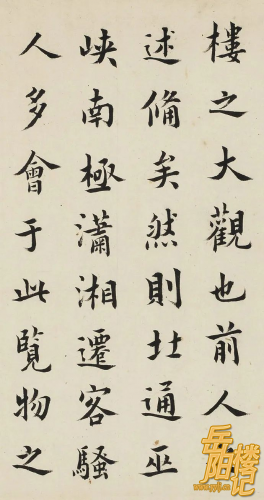 樓之大觀也前人
述備矣然則北通巫
峽南極瀟湘遷客騷
人多會于此覽物之
岳阳楼记